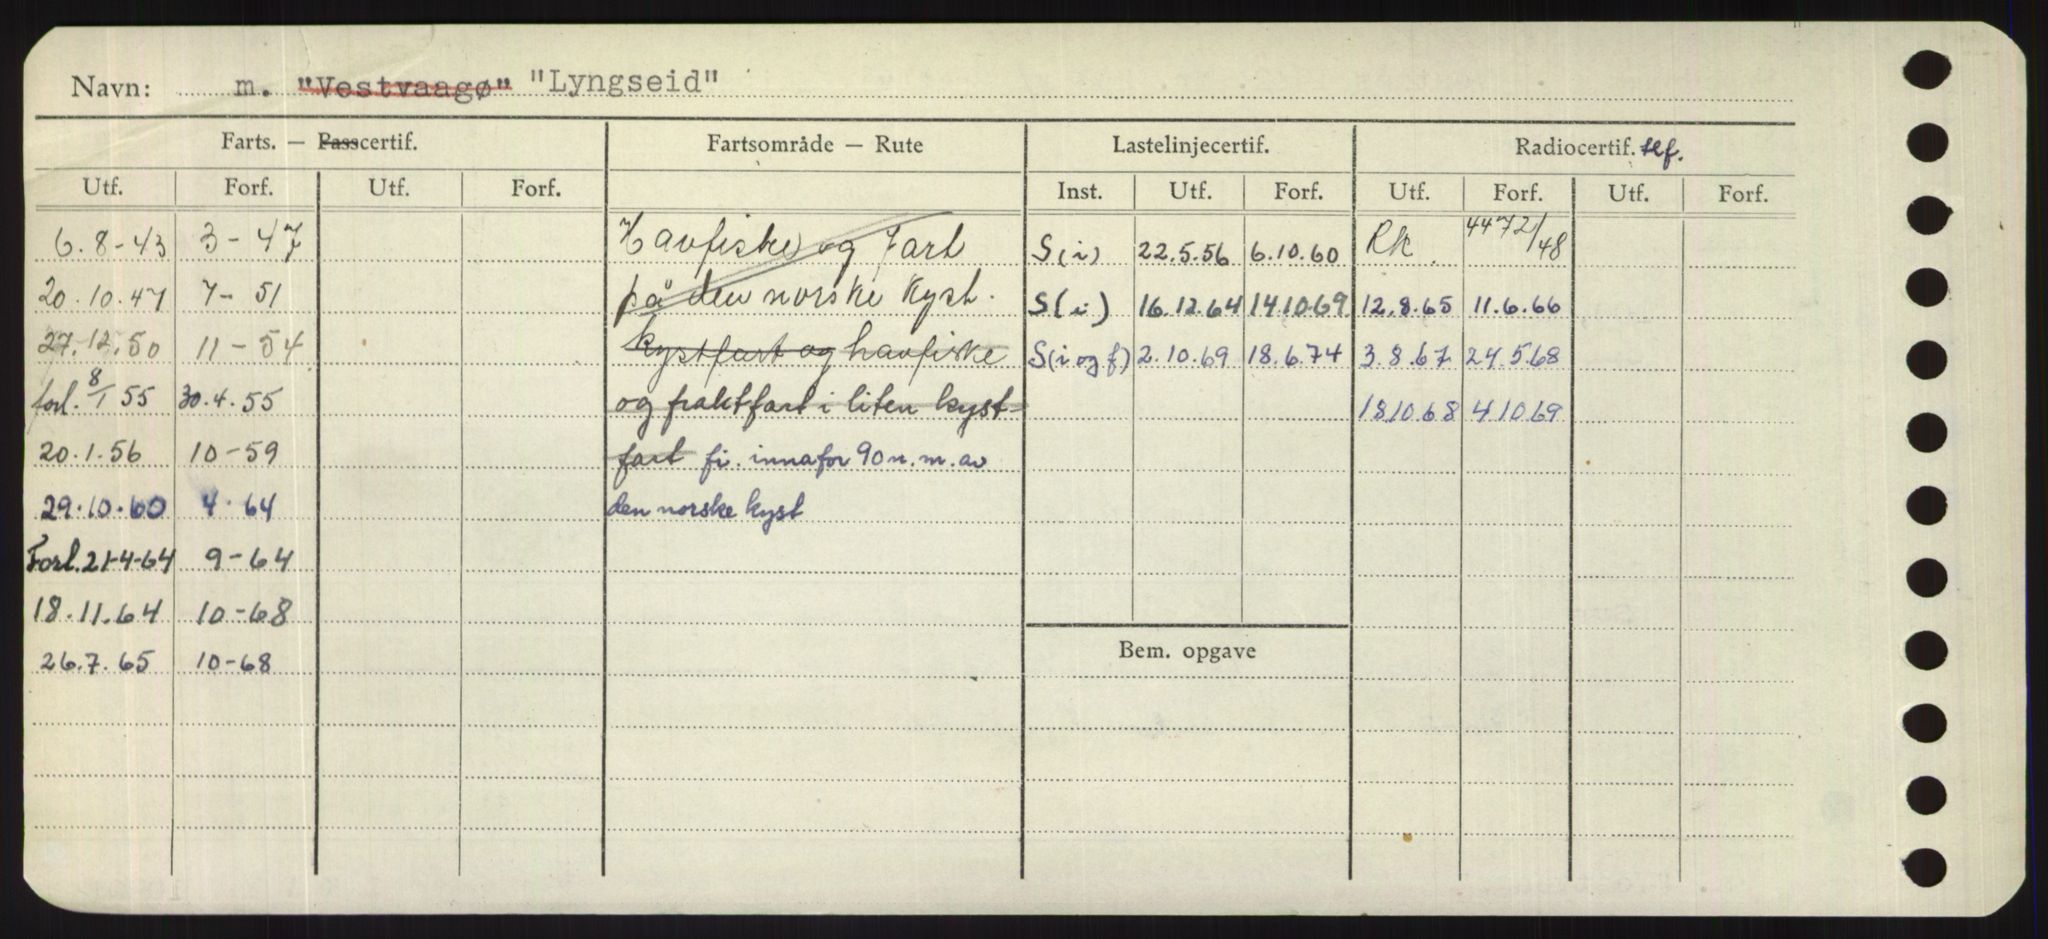 Navn: m. "Vestvaagø" "Lyngseid"
Farts. — Passcertif. Fartsområde — Rute Lastelinjecertif. Radiocertif. tlf.
Utf. Forf. Utf. Forf. Inst. Utf. Forf. Utf. Forf. Utf. Forf.
6.8-43 3-47 Havfiske og Fart S(i) 22.5.56 6.10.60 Rk. 4472/48
20.10.47 7-51 på den norske Kyst. S(i) 16.12.64 14.10.69 12.8.65 11.6.66
27.12.50 11-54 kystfart og havfiske S(i og f) 2.10.69 18.6.74 3.8.67 24.5.68
forl. 8/1 55 30.4.55 og fraktfart i liten kyst- 18.10.68 4.10.69
20.1.56 10-59 fart fi. innafor 90 n.m. av
29.10.60 4.64 den norske kyst
Forl. 21-4-64 9-64
18.11.64 10-68
Bem. opgave
26.7.65 10-68